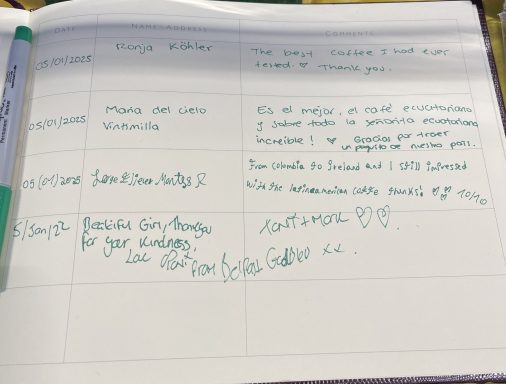 DATE NAME & ADDRESS COMMENTS
05/01/2025 Ronja Köhler The best coffee I had ever
tested. ♡ Thank you.
05/01/2025 Maria del cielo
Vintimilla
Es el mejor, el café ecuatoriano
y sobre todo la señorita ecuatoriana
increible! ♡ Gracias por traer
un poquito de nuestro país.
05/01/2025 Jorge Eliecer
From Colombia to Ireland and I still impressed
with the latinoamerican coffee thanks! ♡♡ 10/10
5/Jan/22 Beatiful Girl,
for your Kindness,
+ Mark ♡♡.
from Belfast xx.